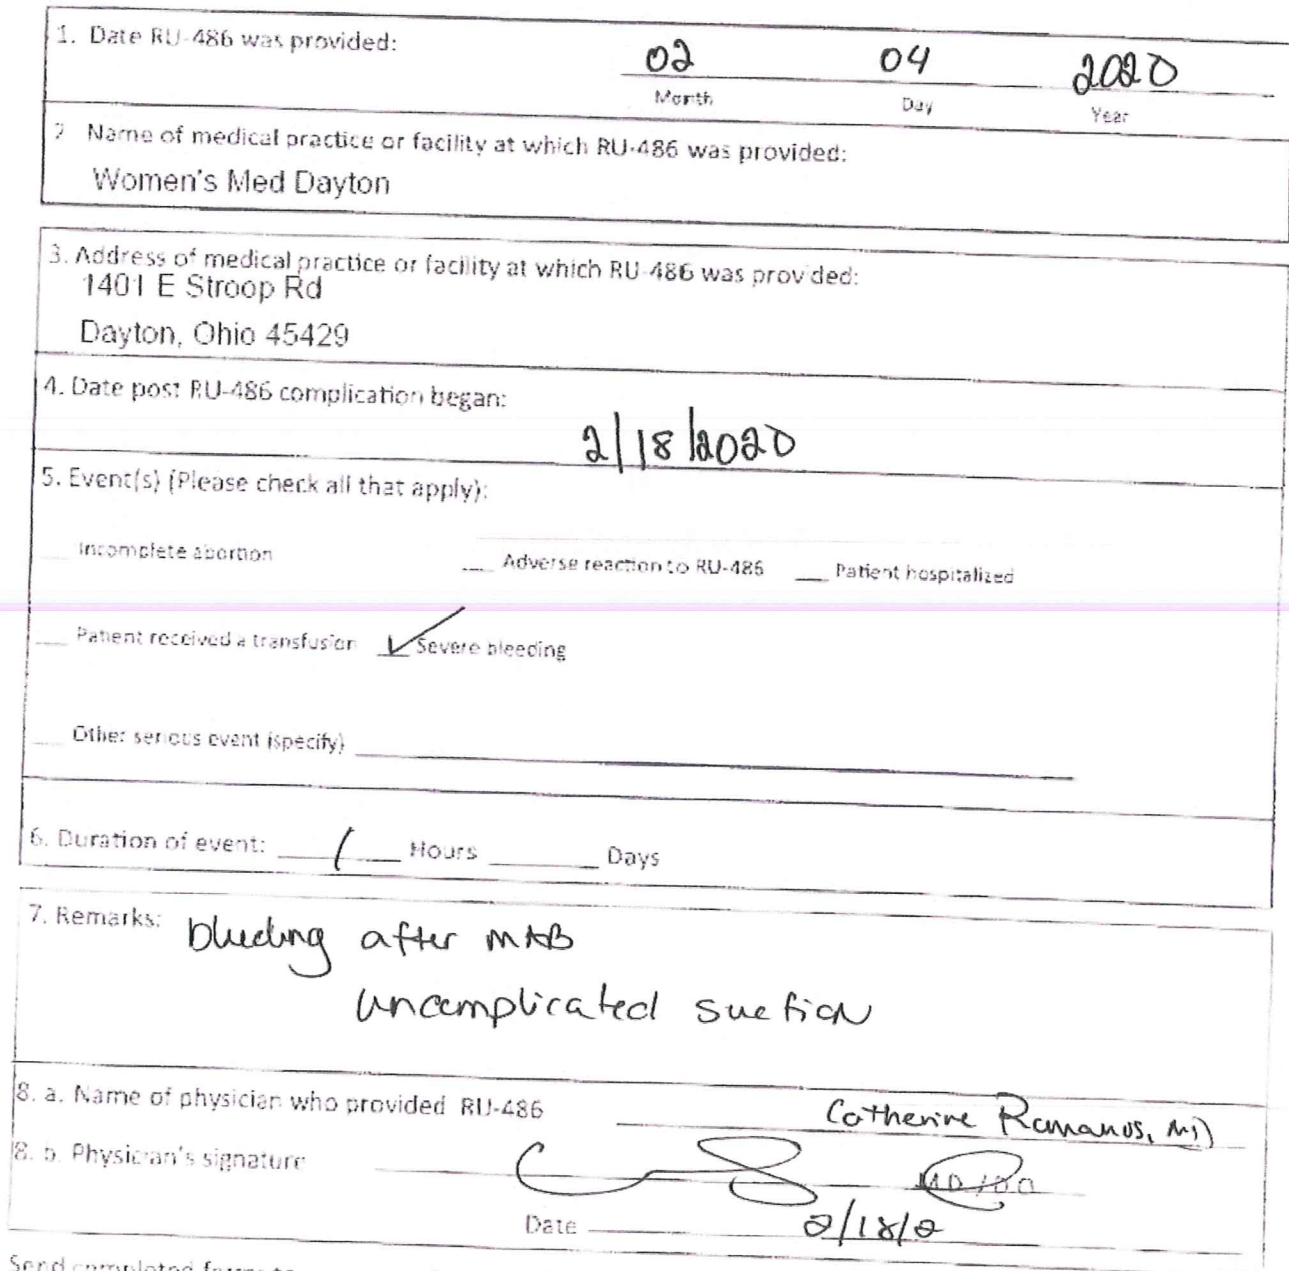 1. Date RU-486 was provided:
02 04 2020
Month Day Year
2 Name of medical practice or facility at which RU-486 was provided:
Women's Med Dayton
3. Address of medical practice or facility at which RU-486 was provided:
1401 E Stroop Rd
Dayton, Ohio 45429
4. Date post RU-486 complication began:
2/18/2020
5. Event(s) (Please check all that apply):
__ Incomplete abortion __ Adverse reaction to RU-486 __ Patient hospitalized
__ Patient received a transfusion ✓ Severe bleeding
__ Other serious event (specify)
6. Duration of event: 1 Hours ____ Days
7. Remarks: bleeding after MAB
uncomplicated suction
8. a. Name of physician who provided RU-486 Catherine Romanos, MD
8. b. Physician's signature MD/DO
Date 2/18/2
Send completed forms to